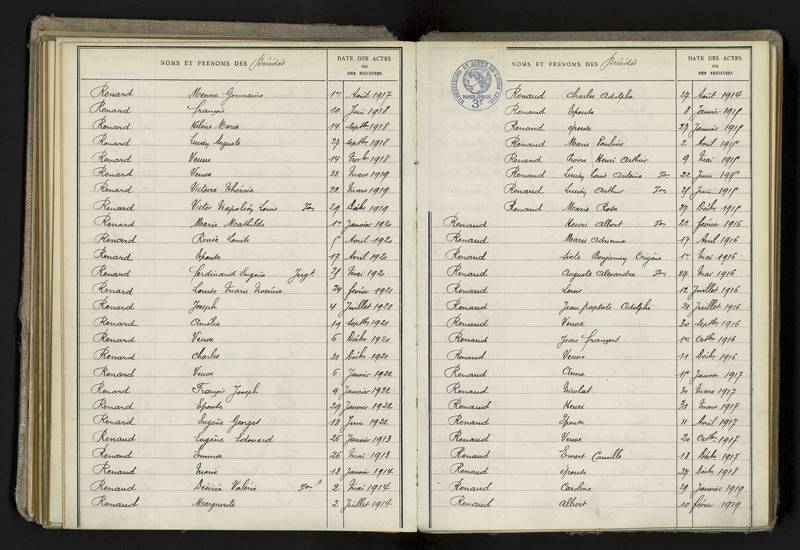 NOMS ET PRENOMS DES Décédés
DATE DES ACTES
OU
DES REGISTRES
Renard Menna Germaine 1er Août 1917
Renard François 10 Juin 1918
Renard Hélène Marie 14 Septbre 1918
Renard Auguste 27 Septbre 1918
Renard Veuve 14 Novbre 1918
Renard Veuve 22 Mars 1919
Renard Victoire Thérèse 22 Mars 1919
Renard Victor Napoléon Louis 29 Décbre 1919
Renard Marie Mathilde 1er Janvier 1920
Renard Renée Louise Avril 1920
Renard Epouse 17 Avril 1920
Renard Ferdinand Eugène Jugt 21 Mai 1920
Renard Louise Marie 24 février 1921
Renard Joseph 4 Juillet 1921
Renard Amélie 19 Septbre 1921
Renard Veuve 6 Décbre 1921
Renard Charles 21 Décbre 1921
Renard Veuve 6 Janvier 1922
Renard François Joseph 9 Janvier 1922
Renard Epouse 29 Janvier 1922
Renard Eugène Georges 18 Juin 1922
Renaud Eugène Edouard 25 Janvier 1913
Renaud Emma 26 Mai 1913
Renaud Marie 13 Janvier 1914
Renaud Désirée Valérie 2 Mai 1914
Renaud Marguerite 2 Juillet 1914
NOMS ET PRENOMS DES Décédés
DATE DES ACTES
OU
DES REGISTRES
3F
Renaud Charles Adolphe 27 Août 1914
Renaud Epouse 8 Janvier 1915
Renaud épouse 27 Janvier 1915
Renaud Marie Pauline 2 Août 1915
Renaud Henri Arthur 9 Mai 1915
Renaud Lucien Louis 22 Juin 1915
Renaud Lucien Arthur Juin 1915
Renaud Marie Rose 27 Décbre 1915
Renaud Henri Albert 22 février 1916
Renaud Marie Adrienne 17 Avril 1916
Renaud Benjamin Origène 1er Mai 1916
Renaud Auguste Alexandre 27 Mai 1916
Renaud Louis 12 Juillet 1916
Renaud Jean Baptiste Adolphe 21 Juillet 1916
Renaud Veuve 30 Septbre 1916
Renaud Jean François 1er Octbre 1916
Renaud Veuve 11 Décbre 1916
Renaud Anna Janvier 1917
Renaud Nicolas 20 Mars 1917
Renaud Henri 31 Mars 1917
Renaud Epouse 11 Avril 1917
Renaud Veuve 20 Octbre 1917
Renaud Ernest Camille 18 Décbre 1917
Renaud épouse 27 Décbre 1918
Renaud Caroline 29 Janvier 1919
Renaud Albert 10 févrer 1919